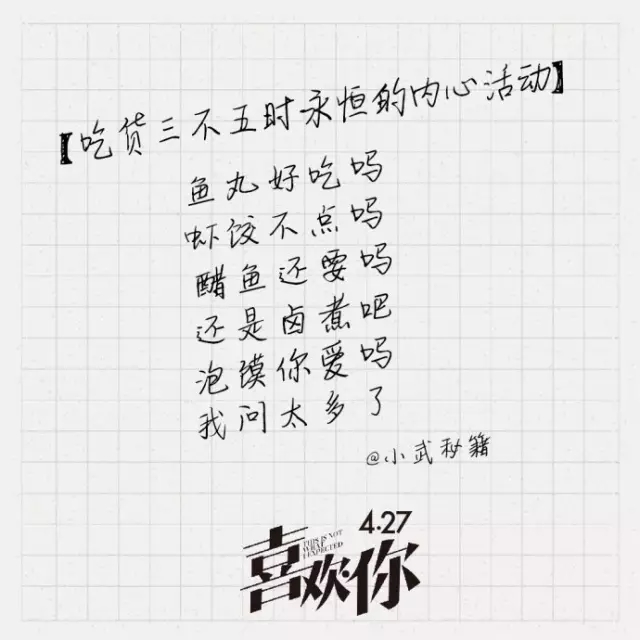 【吃货三不五时永恒的内心活动】
鱼丸好吃吗
虾饺不点吗
醋鱼还要吗
还是卤煮吧
泡馍你爱吗
我问太多了
@小武秘籍
4.27
THIS IS NOT
WHAT
I EXPECTED
喜欢·你